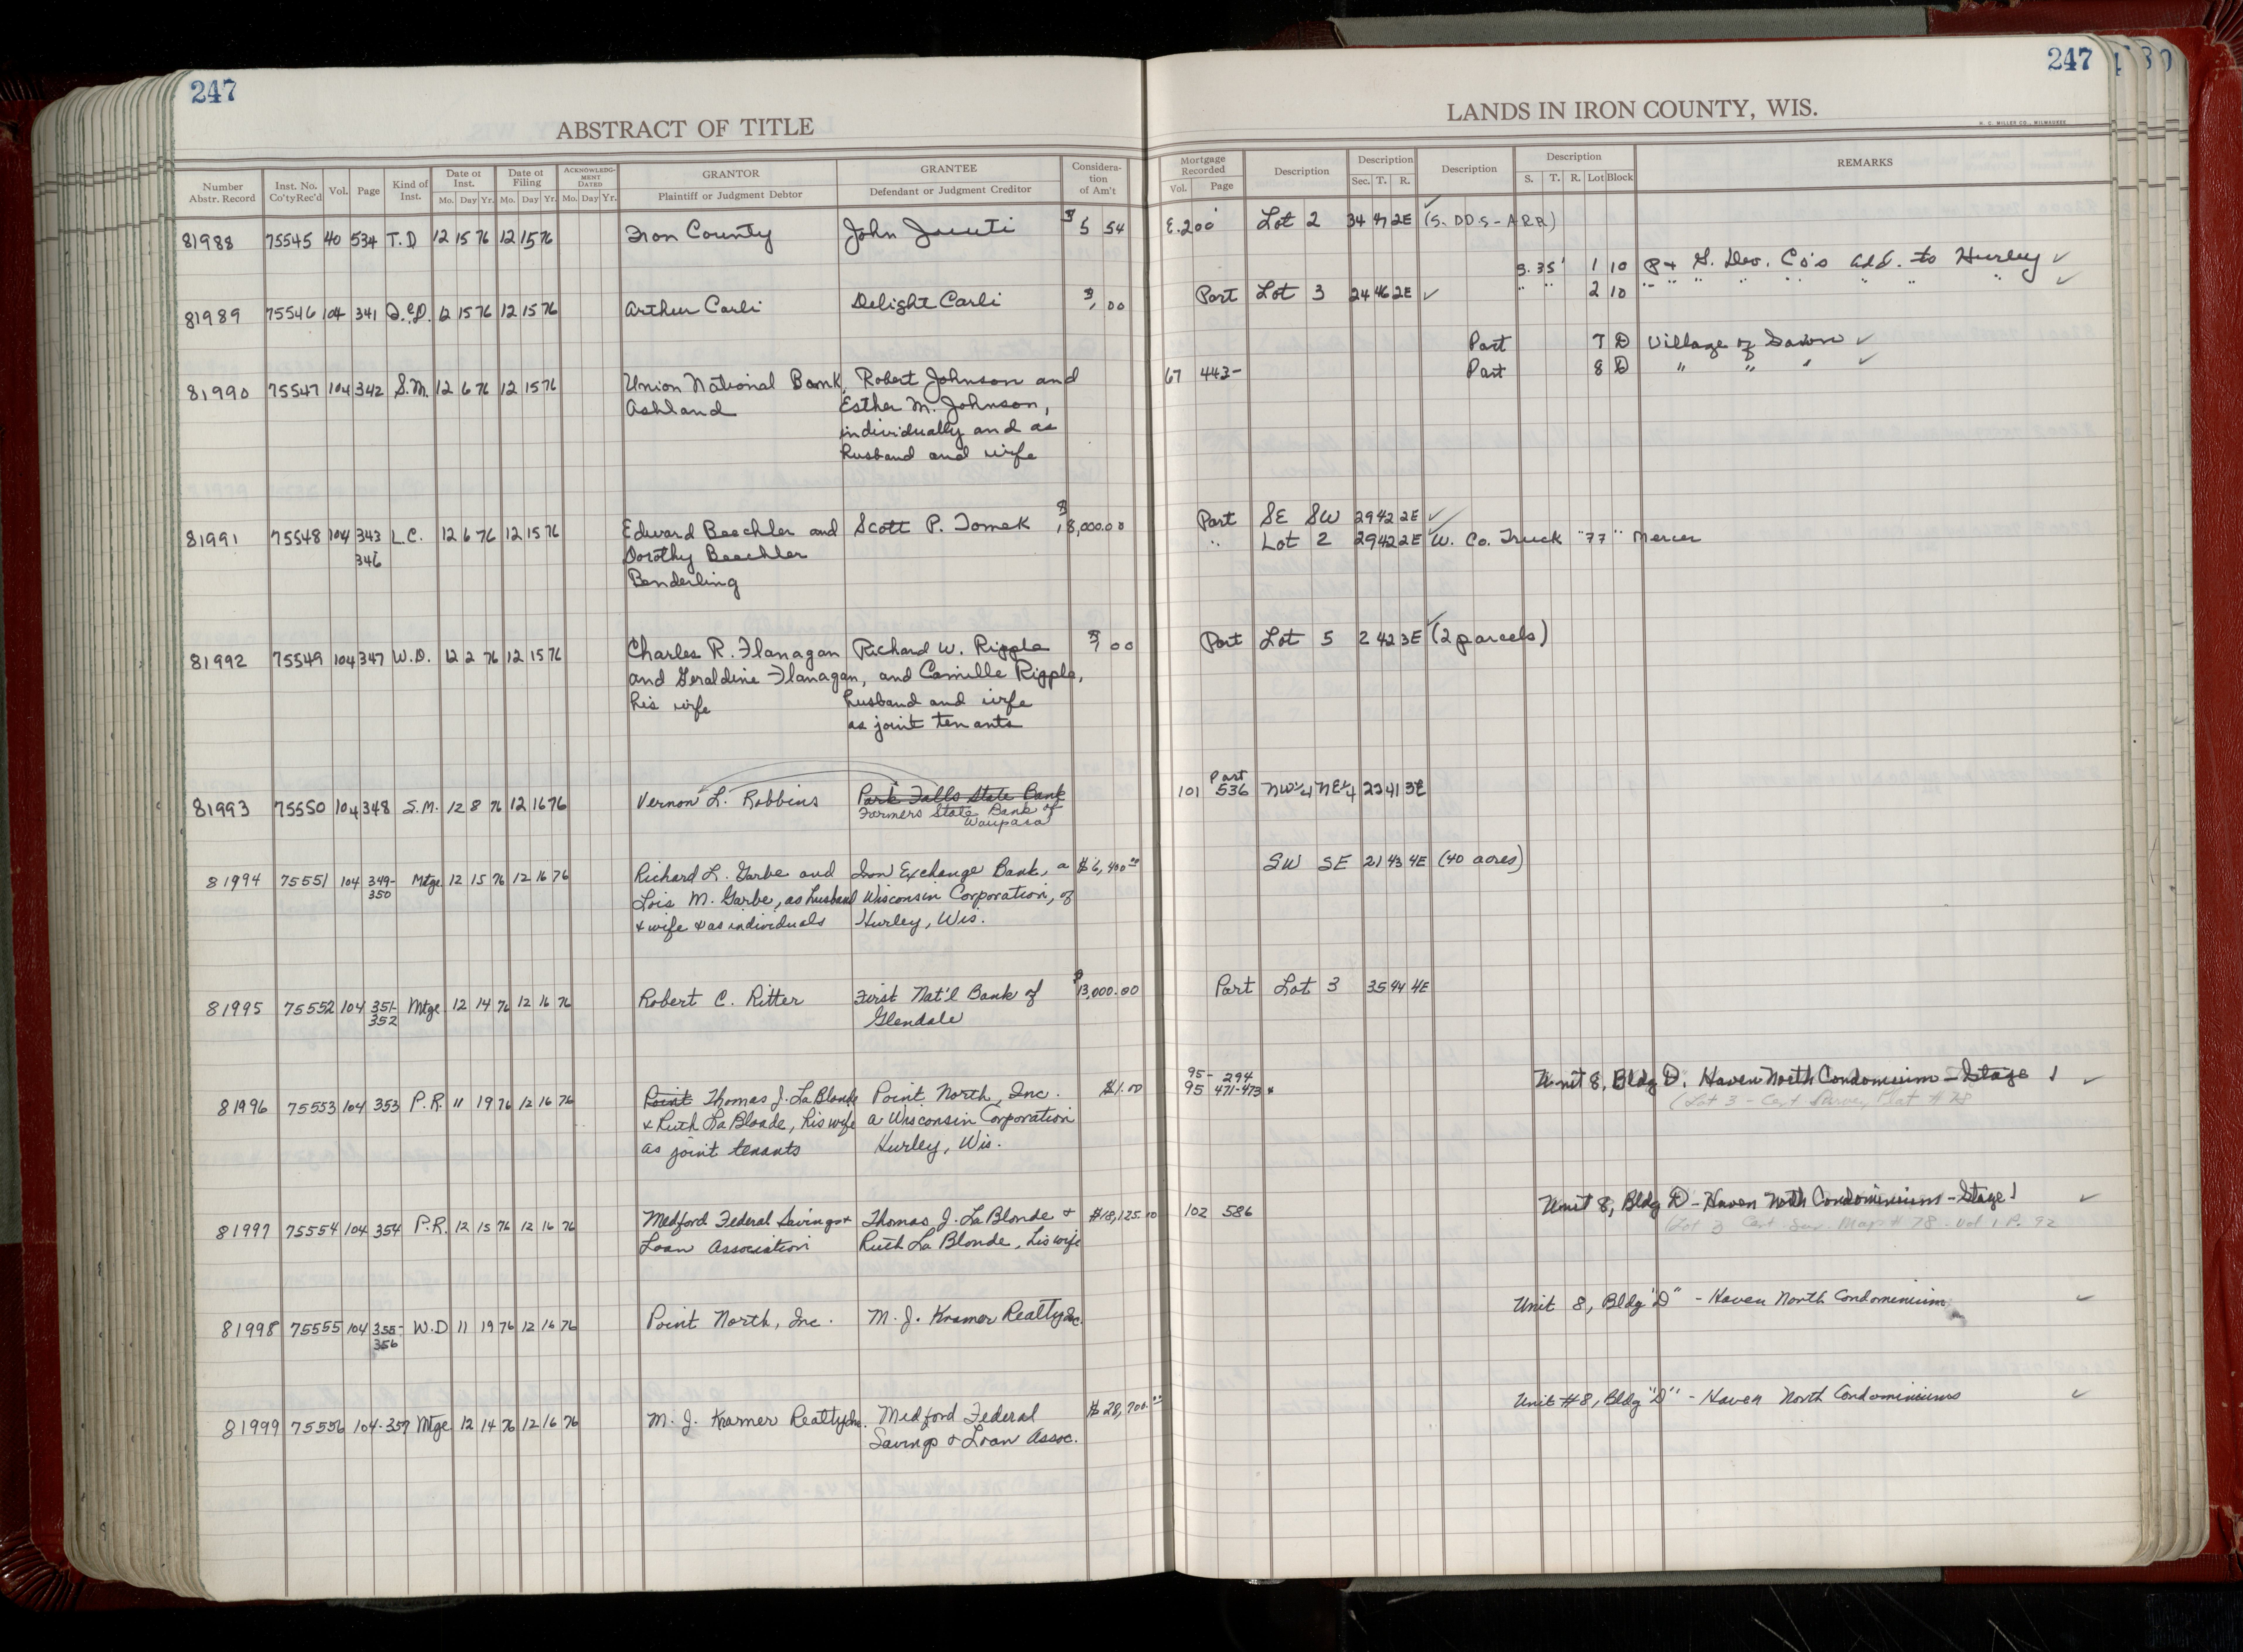 247
ABSTRACT OF TITLE
247
LANDS IN IRON COUNTY, WIS.
H. C. MILLER CO., MILWAUKEE
Number Abstr. Record | Inst. No. Co'ty Rec'd | Vol. | Page | Kind of Inst. | Date of Inst. Mo. Day Yr. | Date of Filing Mo. Day Yr. | ACKNOWLEDGMENT DATED Mo. Day Yr. | GRANTOR Plaintiff or Judgment Debtor | GRANTEE Defendant or Judgment Creditor | Consideration of Am't | Mortgage Recorded Vol. Page | Description | Description Sec. T. R. | Description | Description S. T. R. Lot Block | REMARKS
81988 75545 40 534 T.D 12 15 76 12 15 76 Iron County John $5 54 E.200' Lot 2 34 47 2E (S. DDS-ARR)
S. 35' 1 10 P + G. Dev. Co's add. to Hurley ✓
81989 75546 104 341 Q.C.D. 12 15 76 12 15 76 Arthur Carli Delight Carli $, 00 Part Lot 3 24 46 2E ✓ " " 2 10 " " " " " " " " ✓
Part 7 D Village of Saxon ✓
81990 75547 104 342 S.M. 12 6 76 12 15 76 Union National Bank, Robert Johnson and 67 443- Part 8 D " " " ✓
Ashland Esther M. Johnson,
individually and as
husband and wife
81991 75548 104 343 L.C. 12 6 76 12 15 76 Edward Beechler and Scott P. Tomek $18,000.00 Part SE SW 29 42 2E ✓
346 Dorothy Beechler " Lot 2 29 42 2E W. Co. Truck "77" Mercer
Benderling
81992 75549 104 347 W.D. 12 2 76 12 15 76 Charles R. Flanagan Richard W. Ripple $, 00 Part Lot 5 2 42 3E (2 parcels)
and Geraldine Flanagan, and Camille Ripple,
his wife husband and wife
as joint tenants
81993 75550 104 348 S.M. 12 8 76 12 16 76 Vernon L. Robbins Park Falls State Bank 101 Part 536 NW¼ NE¼ 23 41 3E
Farmers State Bank of
Waupaca
81994 75551 104 349-350 Mtge 12 15 76 12 16 76 Richard L. Garbe and Iron Exchange Bank, a $6,400.00 SW SE 21 43 4E (40 acres)
Lois M. Garbe, as husband Wisconsin Corporation, of
+ wife + as individuals Hurley, Wis.
81995 75552 104 351-352 Mtge 12 14 76 12 16 76 Robert C. Ritter First Nat'l Bank of $13,000.00 Part Lot 3 35 44 4E
Glendale
81996 75553 104 353 P.R. 11 19 76 12 16 76 Point Thomas J. LaBlonde Point North, Inc. $1.00 95- 294 95 471-473 Unit 8, Bldg D, Haven North Condominium - Stage 1 ✓
+ Ruth LaBlonde, his wife a Wisconsin Corporation (Lot 3 - Cert Survey Plat #78
as joint tenants Hurley, Wis.
81997 75554 104 354 P.R. 12 15 76 12 16 76 Medford Federal Savings + Thomas J. LaBlonde + $18,125.00 102 586 Unit 8, Bldg D - Haven North Condominium - Stage 1 ✓
Loan Association Ruth LaBlonde, his wife (Lot 3 Cert. Sur. Map #78 - Vol 1 P. 92
81998 75555 104 355-356 W.D 11 19 76 12 16 76 Point North, Inc. M. J. Kramer Realty Inc. Unit 8, Bldg "D" - Haven North Condominium ✓
81999 75556 104-357 Mtge 12 14 76 12 16 76 M. J. Kramer Realty Inc. Medford Federal $28,700.00 Unit #8, Bldg "D" - Haven North Condominiums ✓
Savings & Loan Assoc.